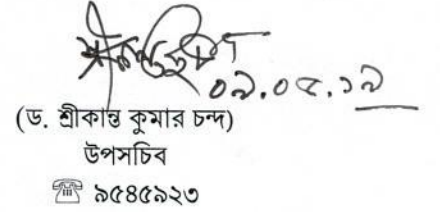 ০৯.০৫.১৯
(ড. শ্রীকান্ত কুমার চন্দ)
উপসচিব
☎ ৯৫৪৫৯২৩